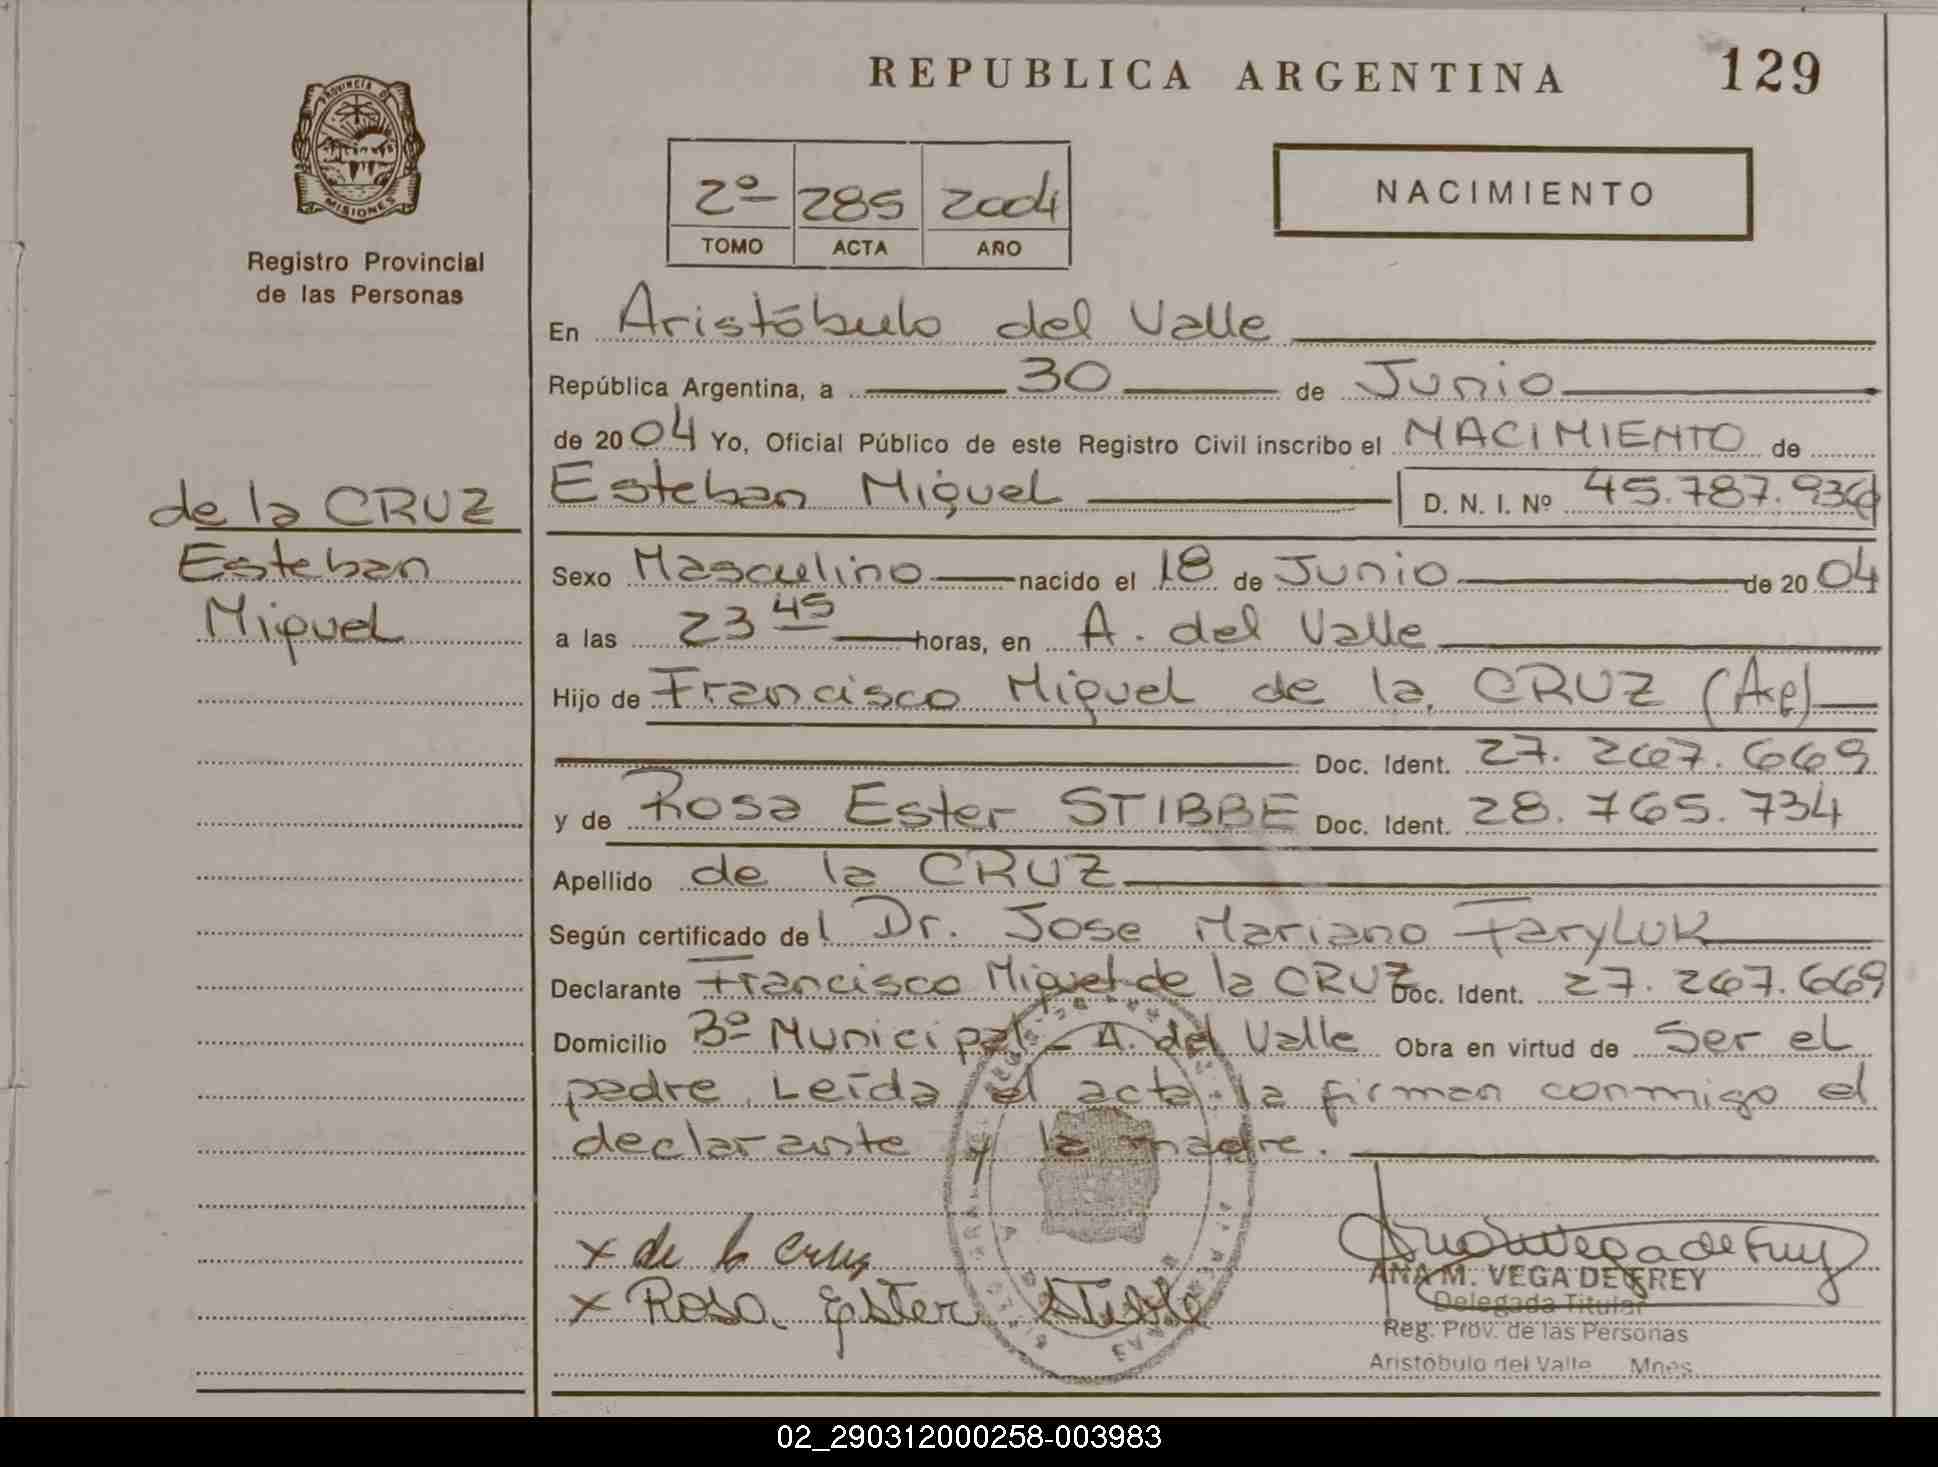 REPUBLICA ARGENTINA 129
PROVINCIA DE
MISIONES
Registro Provincial
de las Personas
2º 285 2004
TOMO ACTA AÑO
NACIMIENTO
En Aristóbulo del Valle
República Argentina, a 30 de Junio
de 2004 Yo, Oficial Público de este Registro Civil inscribo el NACIMIENTO de
de la CRUZ
Esteban
Miguel
Esteban Miguel D. N. I. Nº 45.787.936
Sexo Masculino nacido el 18 de Junio de 2004
a las 23 45 horas, en A. del Valle
Hijo de Francisco Miguel de la CRUZ (Ag)
Doc. Ident. 27.267.669
y de Rosa Ester STIBBE Doc. Ident. 28.765.734
Apellido de la CRUZ
Según certificado del Dr. Jose Mariano Faryluk
Declarante Francisco Miguel de la CRUZ Doc. Ident. 27.267.669
Domicilio Bº Municipal - A. del Valle Obra en virtud de Ser el
padre. Leída el acta la firman conmigo el
declarante y la madre.
x de la Cruz
x Rosa Ester Stibbe
ANA M. VEGA DE FREY
Delegada Titular
Reg. Prov. de las Personas
Aristóbulo del Valle Mnes
02_290312000258-003983